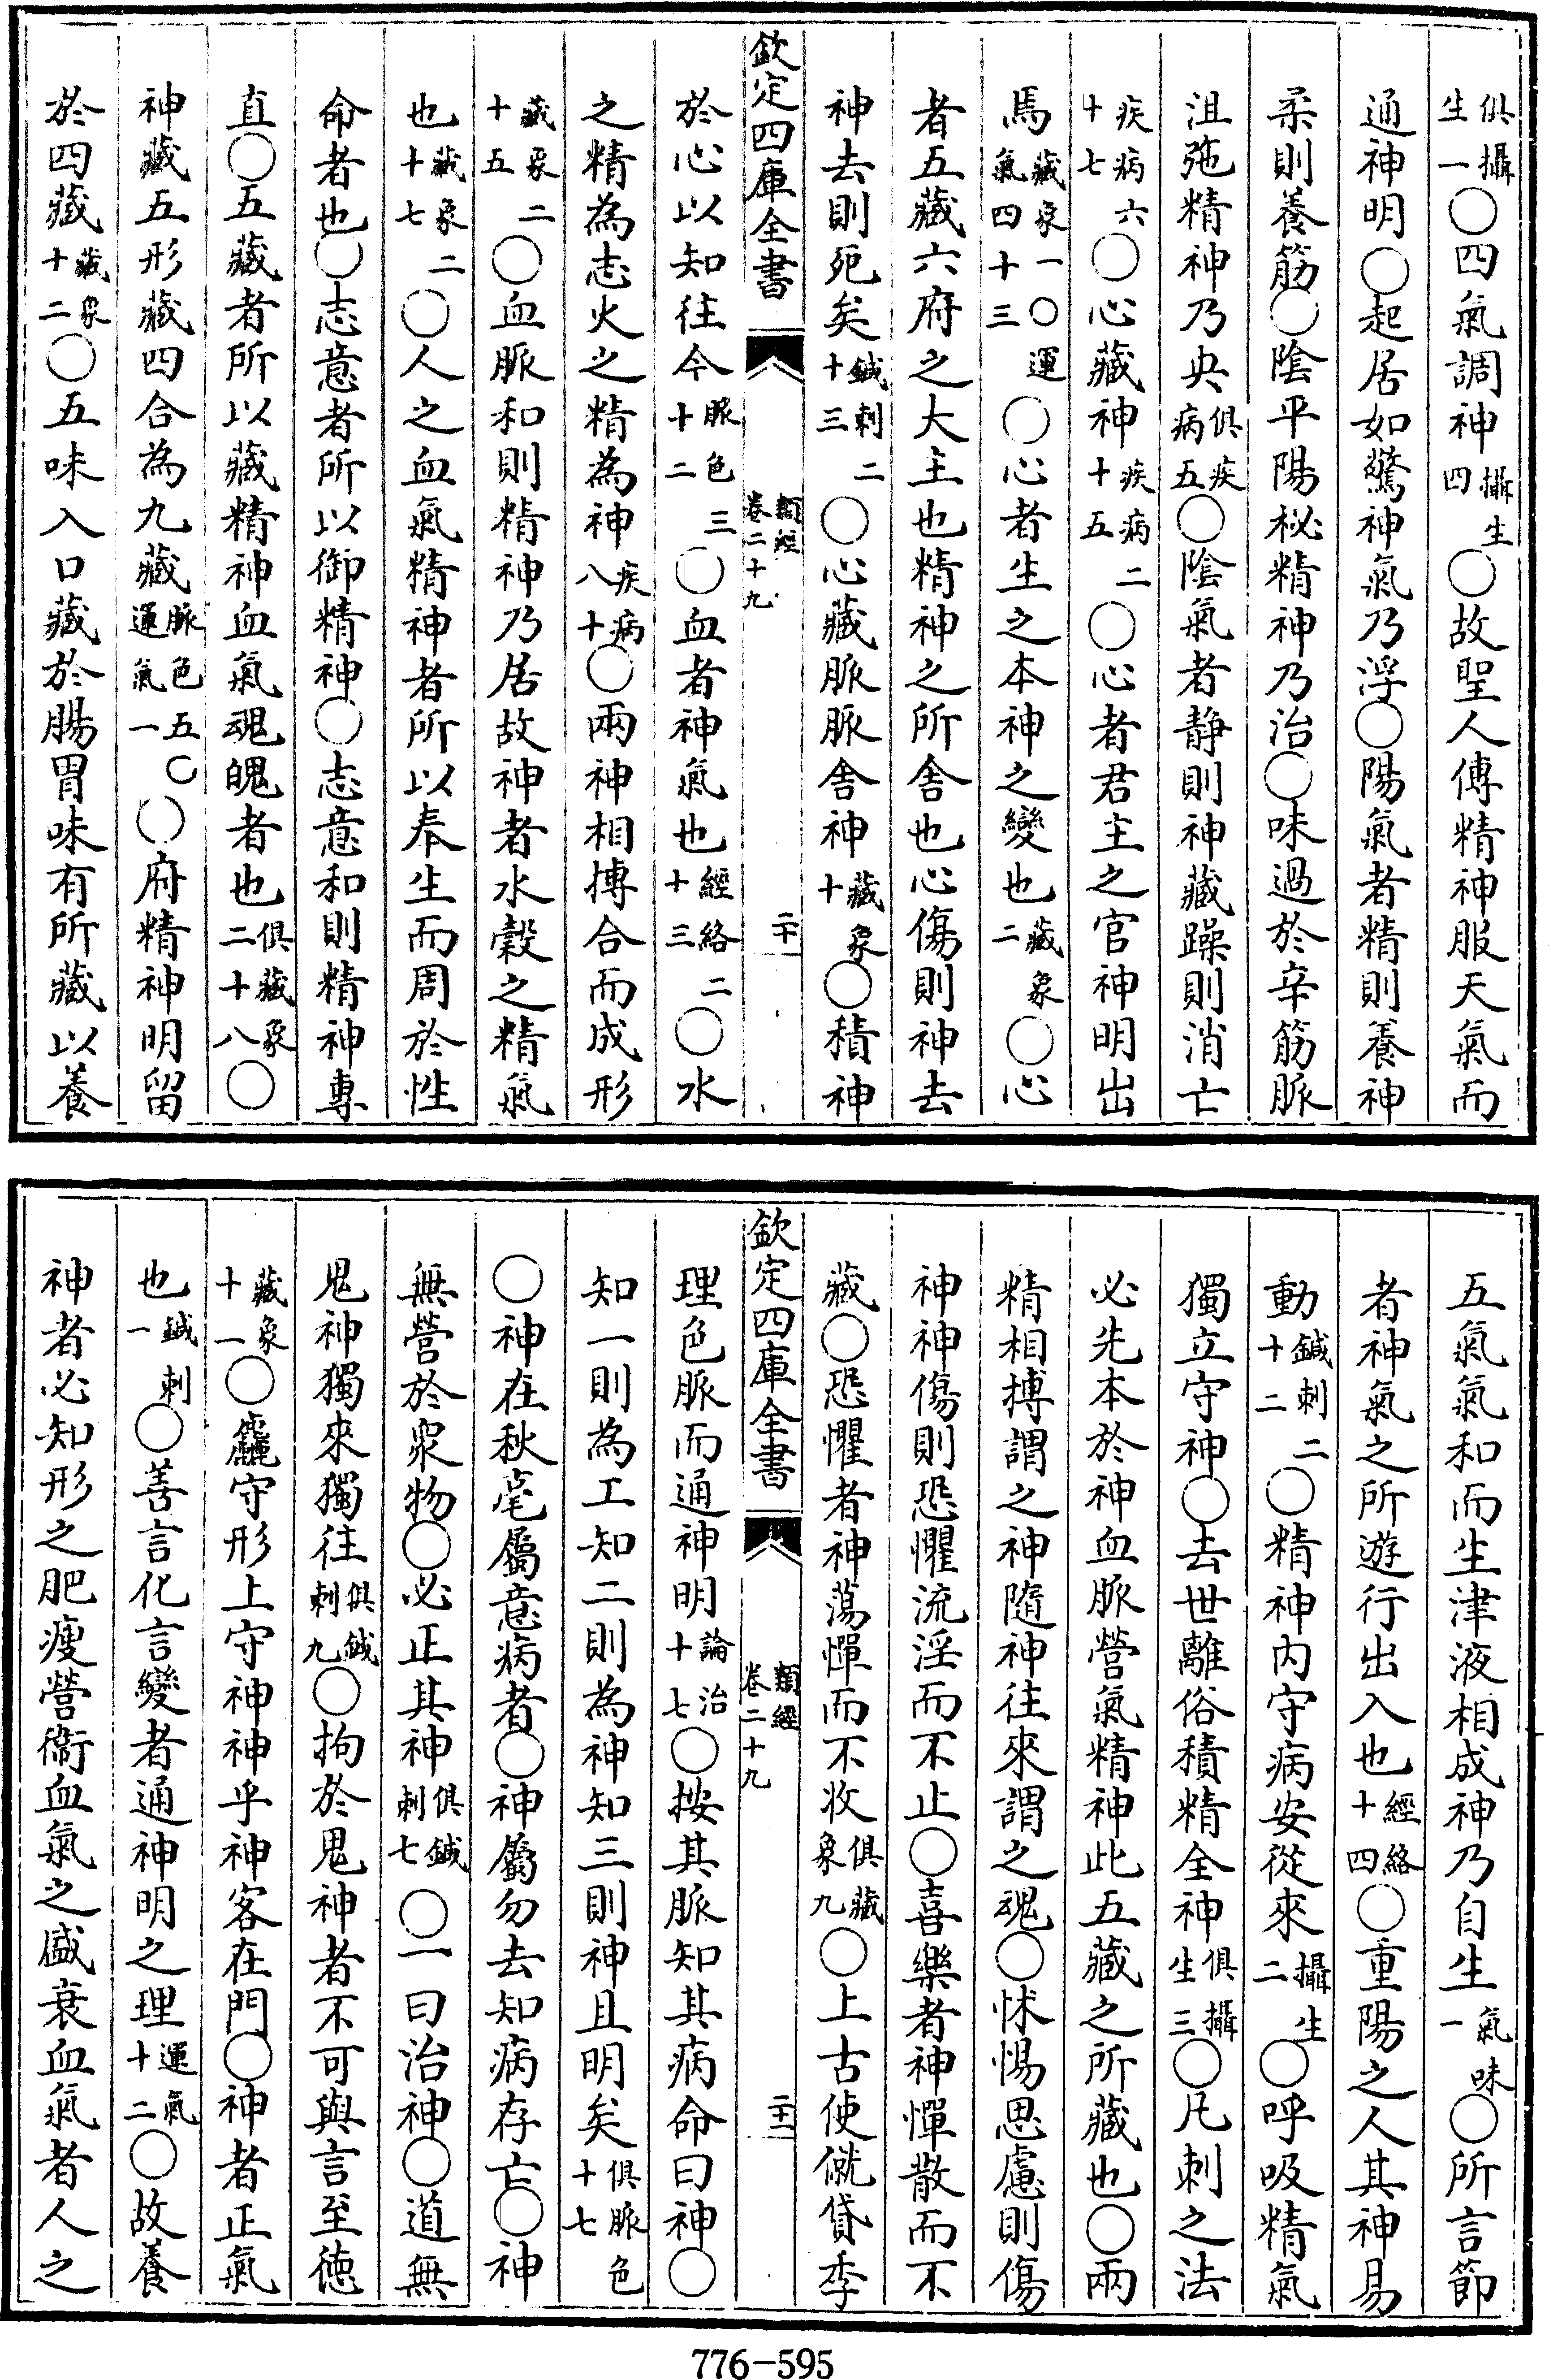 俱攝生一○四氣調神攝生四○故聖人傳精神服天氣而
通神明○起居如驚神氣乃浮○陽氣者精則養神
柔則養筋○陰平陽秘精神乃治○味過於辛筋脈
沮弛精神乃央俱疾病五○陰氣者静則神藏躁則消亡
疾病六十七○心藏神疾病二十五○心者君主之官神明出
馬藏象一○運氣四十三○心者生之本神之變也藏象二○心
者五藏六府之大主也精神之所舍也心傷則神去
神去則死矣鍼刺二十三○心藏脈脈舍神藏象十○積神
欽定四庫全書 類經卷二十九 二十一
於心以知往今脈色三十二○血者神氣也經絡二十三○水
之精為志火之精為神疾病八十○兩神相搏合而成形
藏象二十五○血脈和則精神乃居故神者水穀之精氣
也藏象二十七○人之血氣精神者所以奉生而周於性
命者也○志意者所以御精神○志意和則精神專
直○五藏者所以藏精神血氣魂魄者也俱藏象二十八○
神藏五形藏四合為九藏脈色五○運氣一○府精神明留
於四藏藏象十二○五味入口藏於腸胃味有所藏以養
五氣氣和而生津液相成神乃自生氣味一○所言節
者神氣之所遊行出入也經絡十四○重陽之人其神易
動鍼刺二十二○精神内守病安從來攝生二○呼吸精氣
獨立守神○去世離俗積精全神俱攝生三○凡刺之法
必先本於神血脈營氣精神此五藏之所藏也○兩
精相搏謂之神隨神往來謂之魂○怵惕思慮則傷
神神傷則恐懼流淫而不止○喜樂者神憚散而不
藏○恐懼者神蕩憚而不收俱藏象九○上古使僦貸季
欽定四庫全書 類經卷二十九 二十二
理色脈而通神明論治十七○按其脈知其病命曰神○
知一則為工知二則為神知三則神且明矣俱脈色十七
○神在秋毫屬意病者○神屬勿去知病存亡○神
無營於衆物○必正其神俱鍼刺七○一曰治神○道無
鬼神獨來獨往俱鍼刺九○拘於鬼神者不可與言至德
藏象十一○麤守形上守神神乎神客在門○神者正氣
也鍼刺一○善言化言變者通神明之理運氣十二○故養
神者必知形之肥瘦營衞血氣之盛衰血氣者人之
776-595